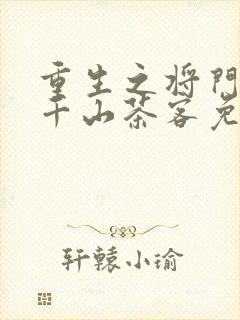 重生之将门
千山茶客免
轩辕小瑜